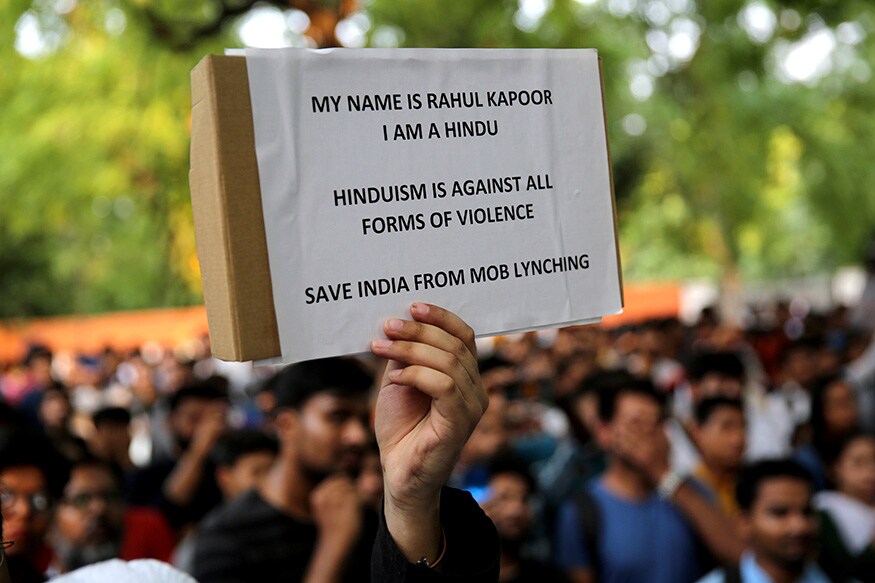 MY NAME IS RAHUL KAPOOR
I AM A HINDU
HINDUISM IS AGAINST ALL
FORMS OF VIOLENCE
SAVE INDIA FROM MOB LYNCHING